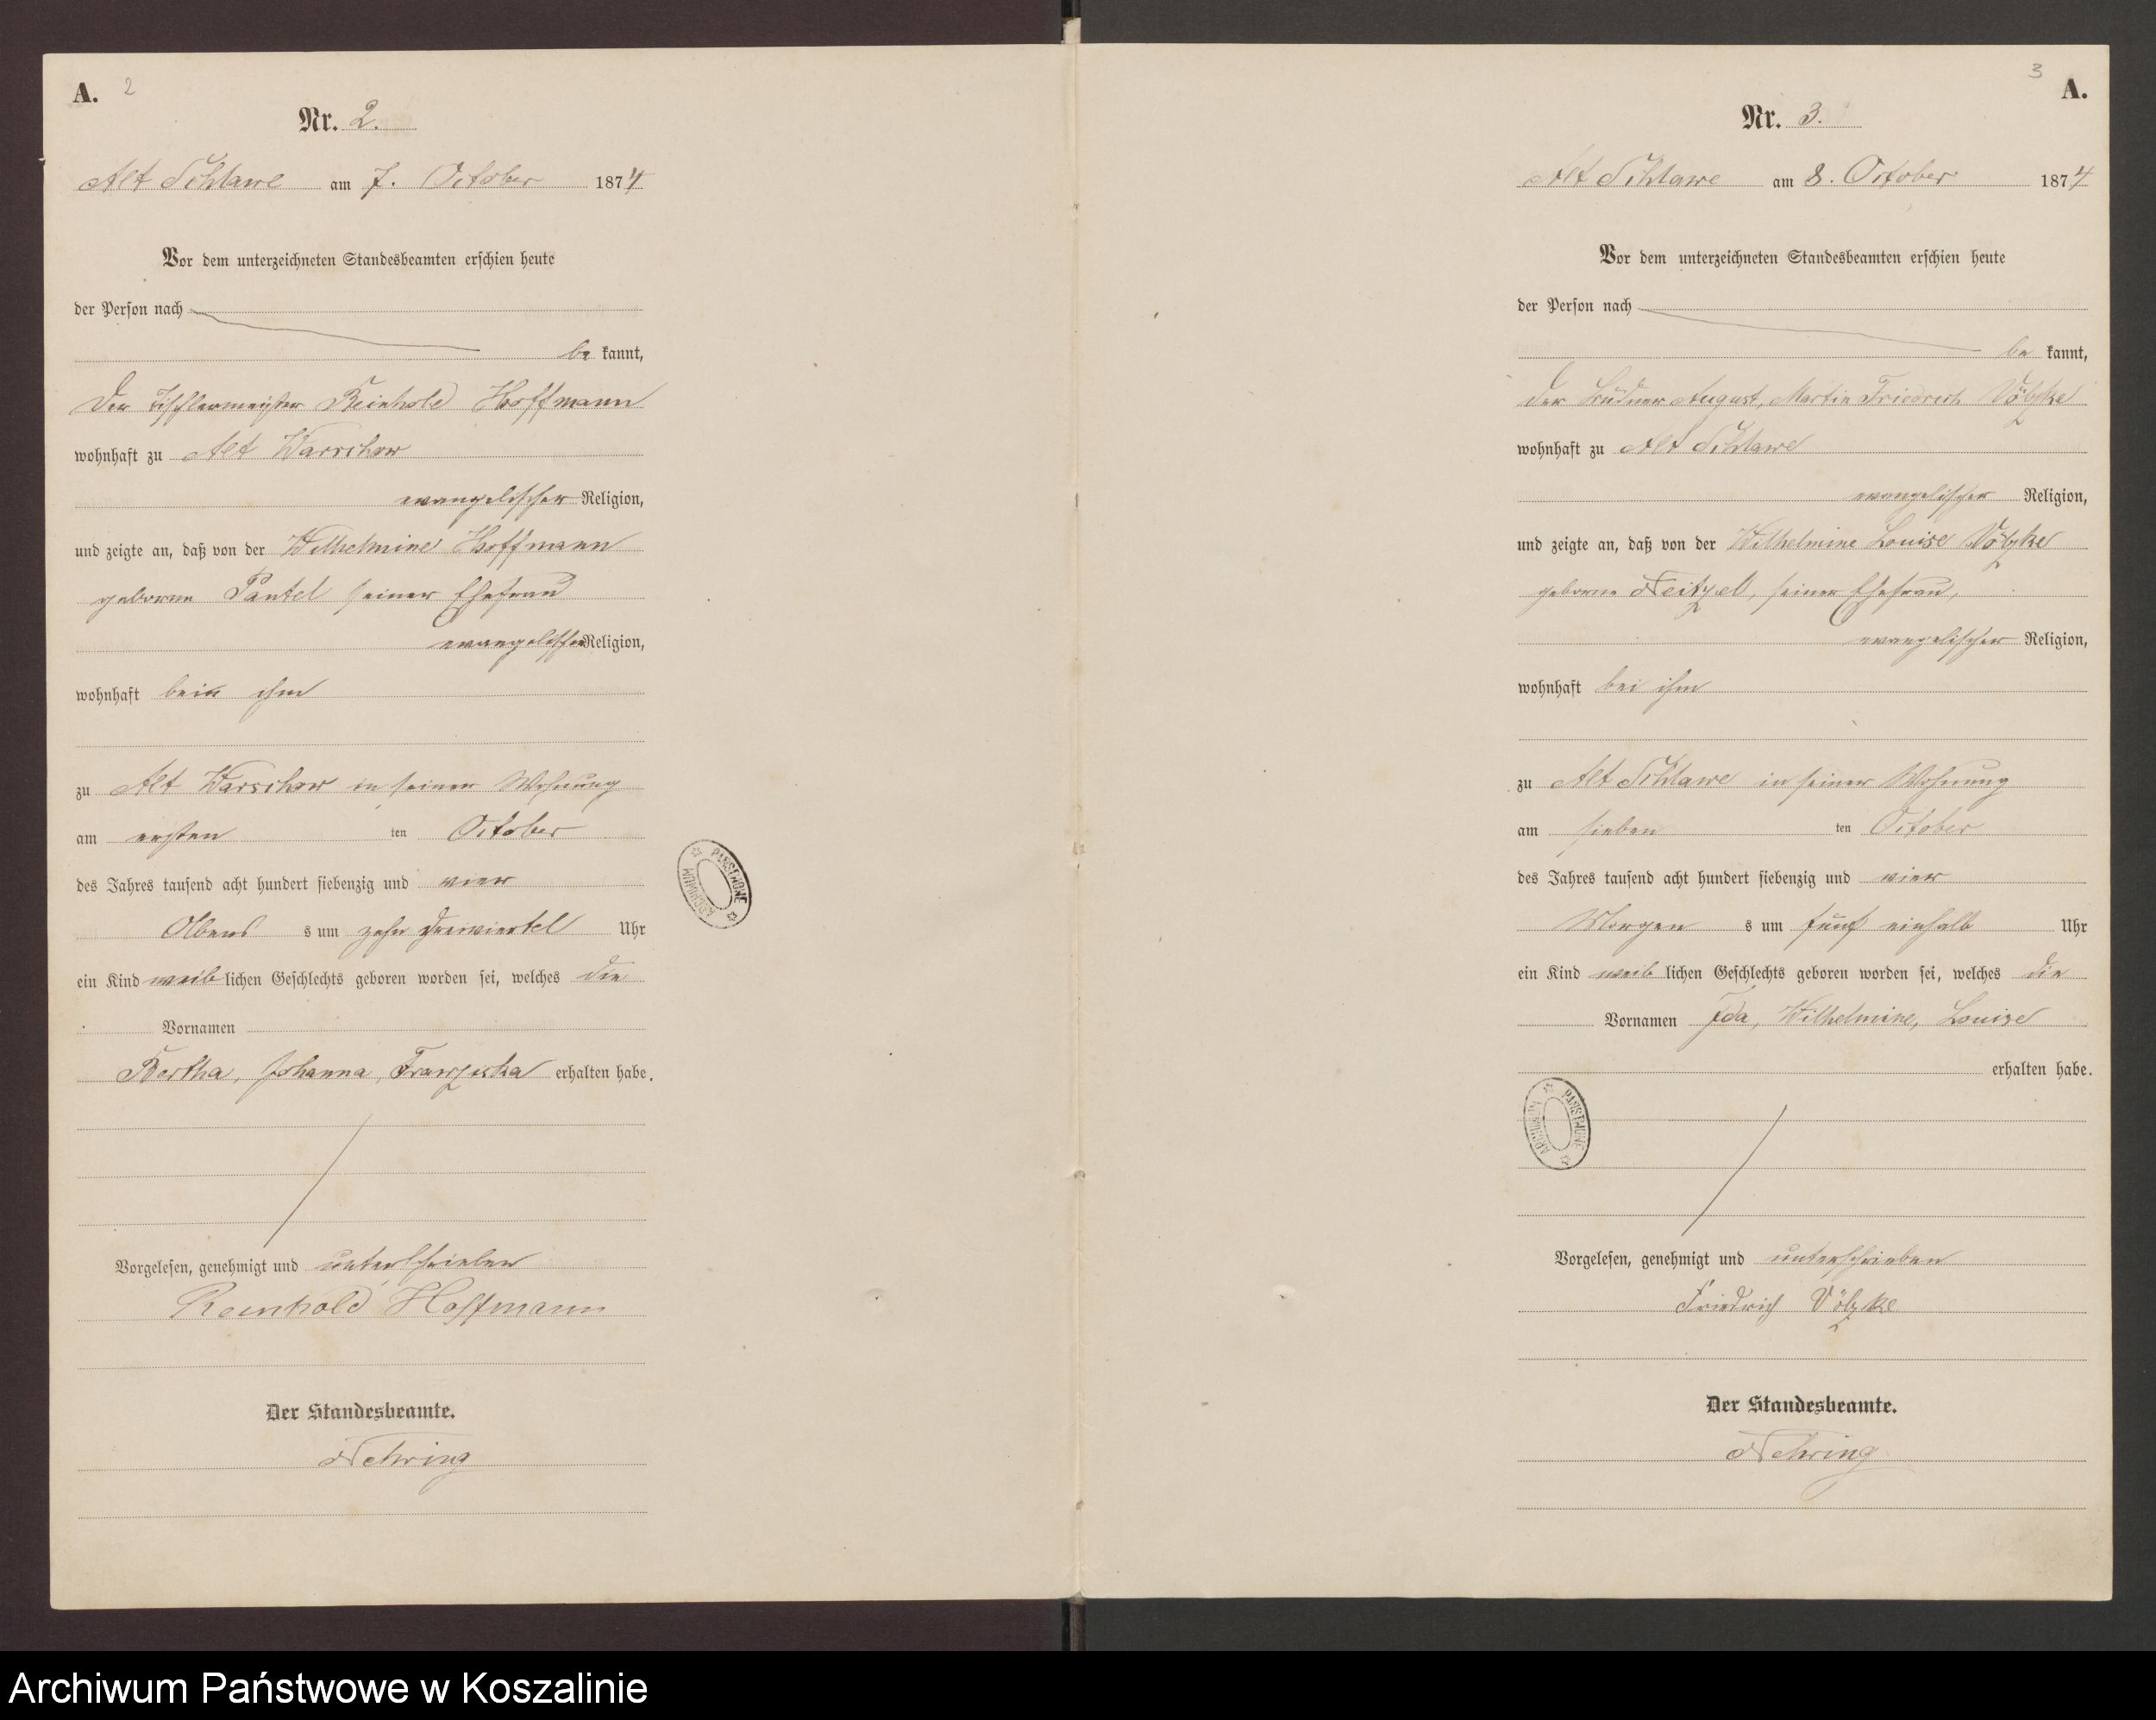 A. 2
Nr. 2.
Alt Schlawe am 7. October 1874
Vor dem unterzeichneten Standesbeamten erschien heute
der Person nach
be kannt,
Der Tischlermeister Reinhold Hoffmann
wohnhaft zu Alt Warschow
evangelischer Religion,
und zeigte an, daß von der Wilhelmine Hoffmann
geborne Pantel seiner Ehefrau
evangelischer Religion,
wohnhaft bei ihm
zu Alt Warschow in seiner Wohnung
am ersten ten October
des Jahres tausend acht hundert siebenzig und vier
Abend s um zehn dreiviertel Uhr
ein Kind weib lichen Geschlechts geboren worden sei, welches die
Vornamen
Bertha, Johanna, Franziska erhalten habe.
Vorgelesen, genehmigt und unterschrieben
Reinhold Hoffmann
Der Standesbeamte.
Nehring
ARCHIWUM PAŃSTWOWE
3 A.
Nr. 3.
Alt Schlawe am 8. October 1874
Vor dem unterzeichneten Standesbeamten erschien heute
der Person nach
be kannt,
der Büdner August, Martin Friedrich Völzke
wohnhaft zu Alt Schlawe
evangelischer Religion,
und zeigte an, daß von der Wilhelmine Louise Völzke
geborne Neitzel, seiner Ehefrau,
evangelischer Religion,
wohnhaft bei ihm
zu Alt Schlawe in seiner Wohnung
am sieben ten October
des Jahres tausend acht hundert siebenzig und vier
Morgen s um fünf einhalb Uhr
ein Kind weib lichen Geschlechts geboren worden sei, welches die
Vornamen Ida, Wilhelmine, Louise
erhalten habe.
ARCHIWUM PAŃSTWOWE
Vorgelesen, genehmigt und unterschrieben
Friedrich Völzke
Der Standesbeamte.
Nehring
Archiwum Państwowe w Koszalinie